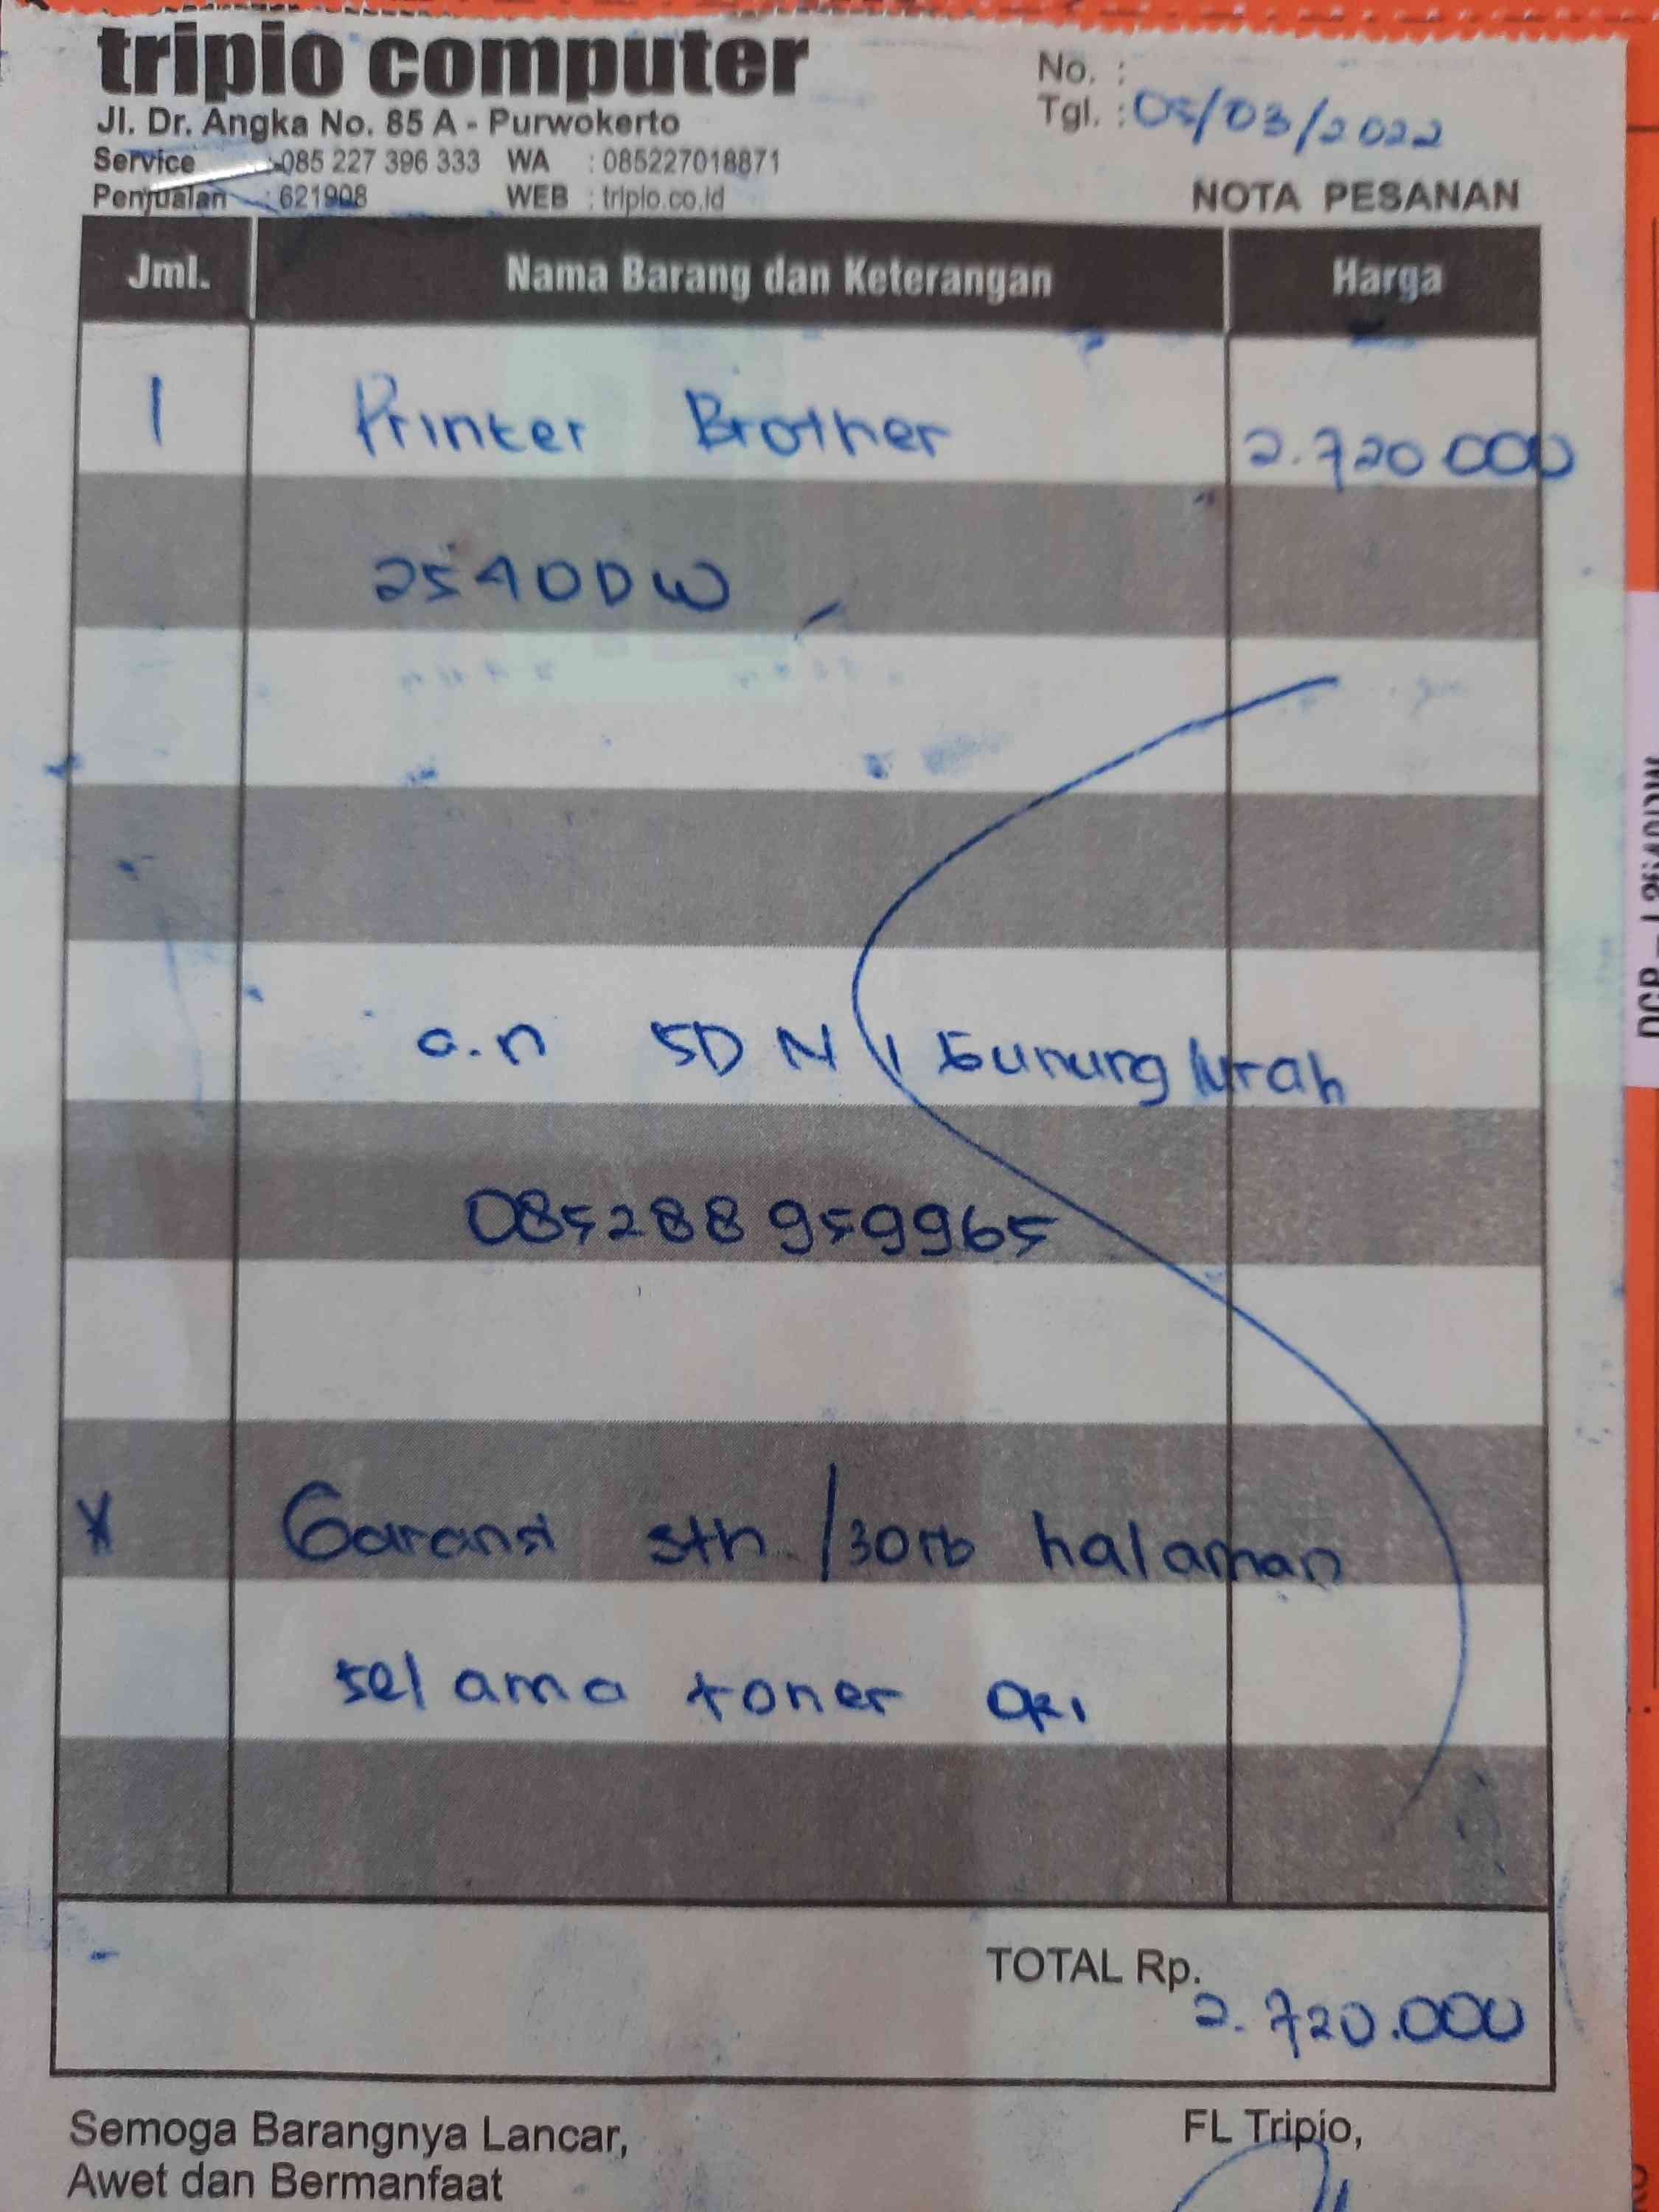 tripio computer
Jl. Dr. Angka No. 85 A - Purwokerto
Service : 085 227 396 333 WA : 085227018871
Penjualan : 621908 WEB : tripio.co.id
No. :
Tgl. : 05/03/2022
NOTA PESANAN
Jml. Nama Barang dan Keterangan Harga
1 Printer Brother 2.720 000
2540DW
a.n SD N 1 Gunung lurah
085288 959965
* Garansi 3th /30rb halaman
selama toner ori
TOTAL Rp.
2.720.000
Semoga Barangnya Lancar,
Awet dan Bermanfaat
FL Tripio,